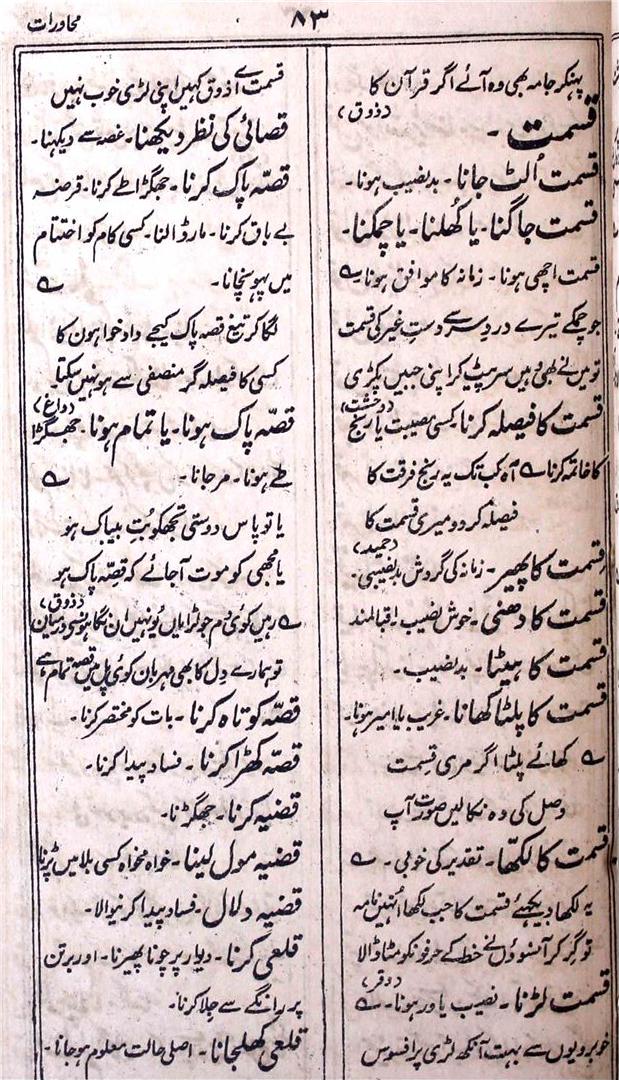 محاورات
۸۳
پہنکر جامہ بھی وہ آئے اگر قرآن کا
(ذوق)
قسمت۔
قسمت اُلٹ جانا۔ بدنصیب ہونا۔
قسمت جاگنا۔ یا کُھلنا۔ یا چمکنا۔
قسمت اچھی ہونا۔ زمانہ کا موافق ہونا۔ ؎
جو چمکے تیرے در دِسر سے دستِ غیر کی قسمت
تو میں نے بھی وہیں سر پیٹ کر اپنی جبیں پکڑی
قسمت کا فیصلہ کرنا۔ کسی مصیبت یا رنج
کا خاتمہ کرنا ؎ آہ کب تک یہ رنج فرقت کا
فیصلہ کر دو میری قسمت کا
قسمت کا پھیر۔ زمانہ کی گردش۔ بدنصیبی۔
قسمت کا دھنی۔ خوش نصیب۔ اقبالمند
قسمت کا ہیٹا۔ بدنصیب۔
قسمت کا پلٹا کھانا۔ غریب یا امیر ہونا۔
؎ کھائے پلٹا اگر مری قسمت
وصل کی وہ نکالیں صورت آپ
قسمت کا لکھّا۔ تقدیر کی خوبی۔ ؎
یہ لکھا دیکھئے قسمت کا جب لکھا اُنہیں نامہ
تو گِر کر آنسوؤں نے خط کے حرفونکو مٹا ڈالا
قسمت لڑنا۔ نصیب یاور ہونا۔ ؎
خوبرویوں سے بہت آنکھ لڑی پر افسوس
قسمت اے ذوق کہیں اپنی لڑی خوب نہیں
قصائی کی نظر دیکھنا۔ غصہ سے دیکہنا۔
قصّہ پاک کرنا۔ جھگڑا طے کرنا۔ قرضہ
بے باق کرنا۔ مار ڈالنا۔ کسی کام کو اختتام
میں پہونچانا۔ ؎
لگا کر تیغ قصہ پاک کیجے داد خواہون کا
کسی کا فیصلہ گر منصفی سے ہو نہیں سکتا
(داغ)
قصّہ پاک ہونا۔ یا تمام ہونا۔ جھگڑا
طے ہونا۔ مرجانا۔ ؎
یا تو پاس دوستی تجھکو بُت بیباک ہو
یا مجھی کو موت آجائے کہ قصّہ پاک ہو
(ذوق)
؎ رہیں کوئی دم جو لڑائیاں یُونہیں ان نگاہوں سے درمیان
تو ہمارے دل کا بھی مہربان کوئی پل میں قصہ تمام ہے
قصّہ کوتاہ کرنا۔ بات کو مختصر کرنا۔
قصّہ کھڑا کرنا۔ فساد پیدا کرنا۔
قضیہ کرنا۔ جھگڑنا۔
قضیہ مول لینا۔ خواہ مخواہ کسی بلا میں پڑنا
قضیہ دلال۔ فساد پیدا کرنیوالا۔
قلعی کرنا۔ دیوار پر چونا پھیرنا۔ اور برتن
پر رانگے سے جِلا کرنا۔
قلعی کھلجانا۔ اصلی حالت معلوم ہوجانا۔